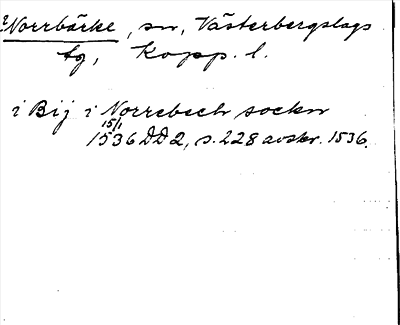 ?Norrbärke, sn, Västerbergslags
tg, Kopp. l.
i Bij i Norrebech socken
15/1
1536 DD 2, s. 228 avskr. 1536.